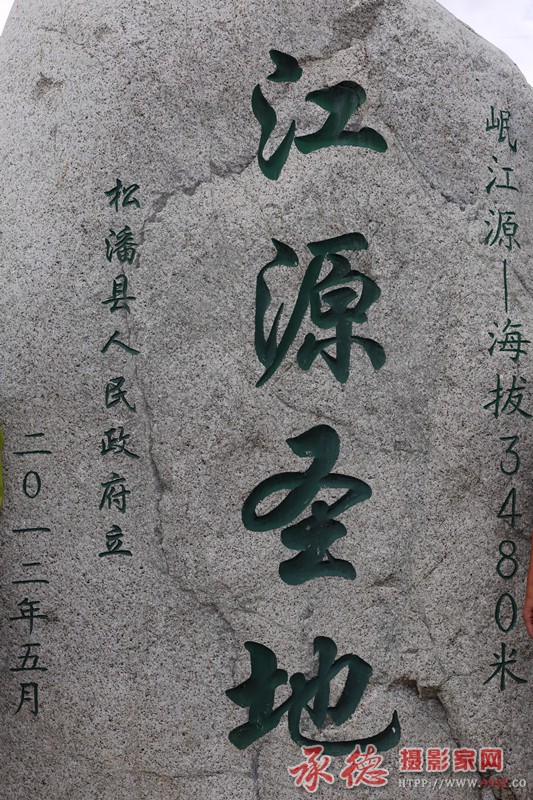 岷江源—海拔3480米
江源圣地
松潘县人民政府立
二〇一二年五月
承德摄影家网